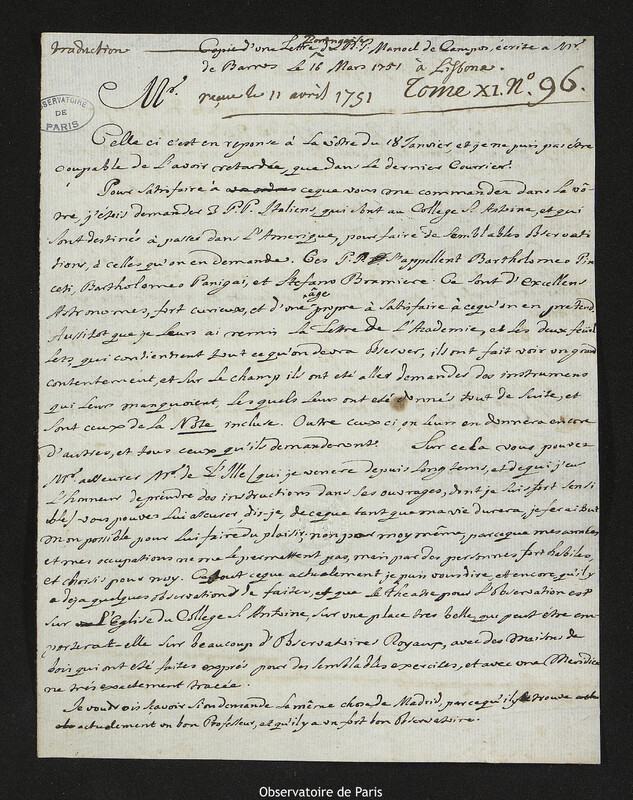 traduction
Copie d'une Lettre du P. Portugais J. Manoel de Campos, écrite a Mr.
de Barros le 16 Mars 1751 à Lisbone.
Mr. reçue le 11 avril 1751 Tome XI. No. 96.
OBSERVATOIRE
DE
PARIS
Celle ci c'est en reponse à la vôtre du 18 Janvier, et je ne puis pas être
coupable de l'avoir retardée, que dans le dernier Courrier.
Pour satisfaire à ceque vous me commandez dans la vô-
tre, j'étois demander 3 P.P. Italiens, qui sont au College St. Antoine, et qui
sont destinés à passer dans L'Amerique, pour faire de semblables Observa-
tions, à celles qu'on en demande. Ces P.P. s'appellent Bartholomeo Pin-
ceti, Bartholomeo Panigai, et Stefano Bramiere. Ce sont d'excellens
Astronomes, fort curieux, et d'une âge propre à satisfaire à ceqù'on en pretend.
Aussitot que je leurs ai remis la Lettre de L'Academie, et les deux feuil-
lets qui contiennent tout ce qu'on devra Observer, ils ont fait voir un grand
contentement, et sur le champ ils ont eté allés demander des instrumens
qui leur manquoient, lesquels leur ont eté donnés tout de suite, et
sont ceux de la Note incluse. Outre ceux ci on leurs en donnera encore
d'autres, et tous ceux qu'ils demanderont. Sur cela vous pouvez
Mr. asseurer Mr. de L'Isle (qui je venere depuis long tems, et de qui j'eus
L'honneur de prendre des instructions dans ses ouvrages, dont je suis fort sensi-
ble) vous pouvez lui asseurer dis-je, de ceque tant que ma vie durera, je ferai tout
mon possible pour lui faire du plaisir, non par moy même, parceque mes années
et mes occupations ne me le permettent pas, mais par des personnes fort habiles,
et choisis pour moy. C'est tout ceque actuelement je puis vous dire, et encore, qu'il y
a deja quelques observations de faites, et que le theatre pour l'Observation est
sur l'Eglise du College St. Antoine, sur une place tres belle, que peut être em-
porterat-elle sur beaucoup d'Observatoires Royaux, avec des Maisons de
bois qui ont eté faites exprés pour des semblables exercices, et avec une Meridien-
ne trés exactement tracée.
Je voudrois sçavoir si on demande la même chose de Madrid, parcequ'il y trouve
actuelement un bon Professeur, et qu'il y a un fort bon Observatoire.
Observatoire de Paris